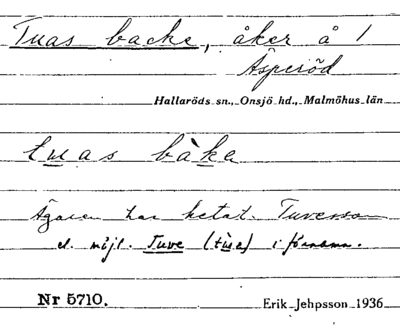 Tuas backe, åker å 1
Äsperöd
Hallaröds sn., Onsjö hd., Malmöhus län
tuas bàka
Ägaren har hetat Tuvesson
el. möjl. Tuve (tùe) i förnamn.
Nr 5710.
Erik Jehpsson 1936